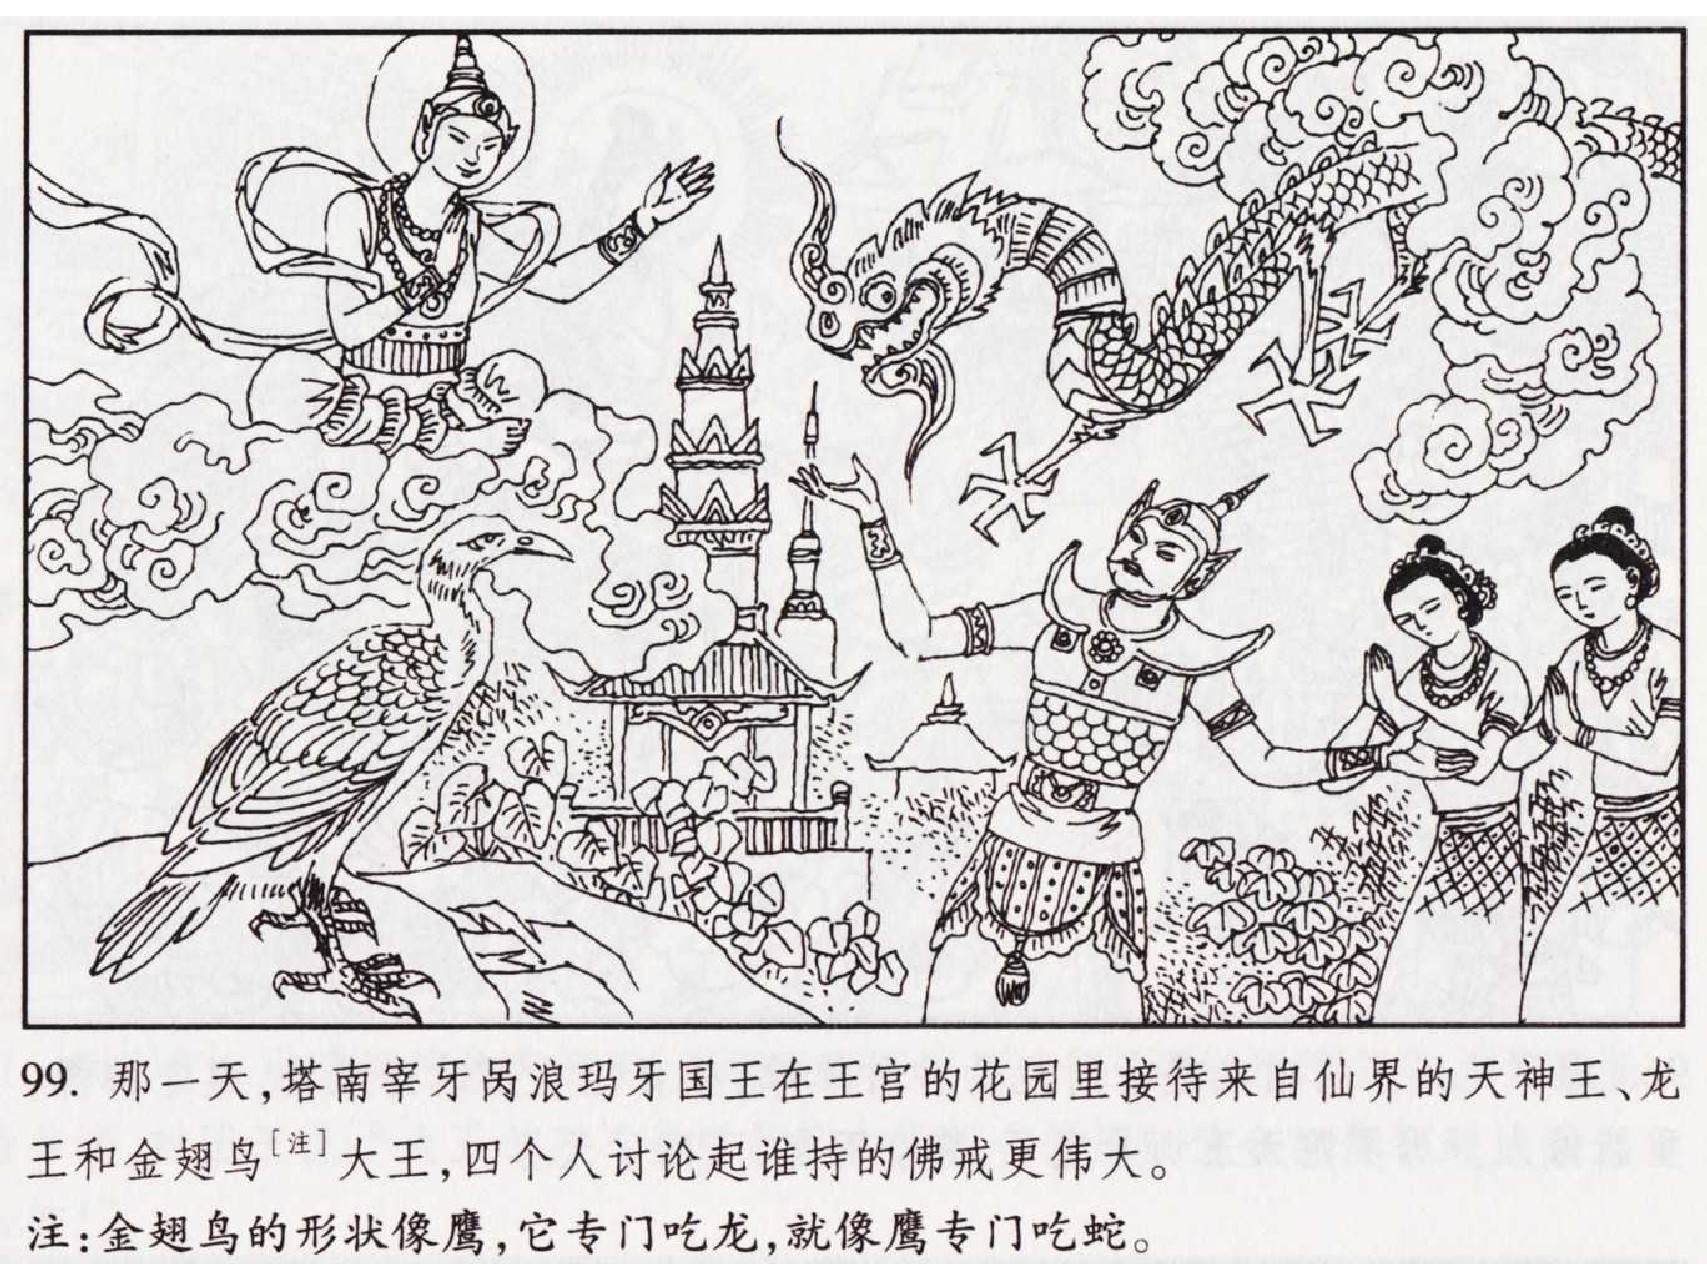 99. 那一天,塔南宰牙呙浪玛牙国王在王宫的花园里接待来自仙界的天神王、龙
王和金翅鸟[注]大王,四个人讨论起谁持的佛戒更伟大。
注:金翅鸟的形状像鹰,它专门吃龙,就像鹰专门吃蛇。